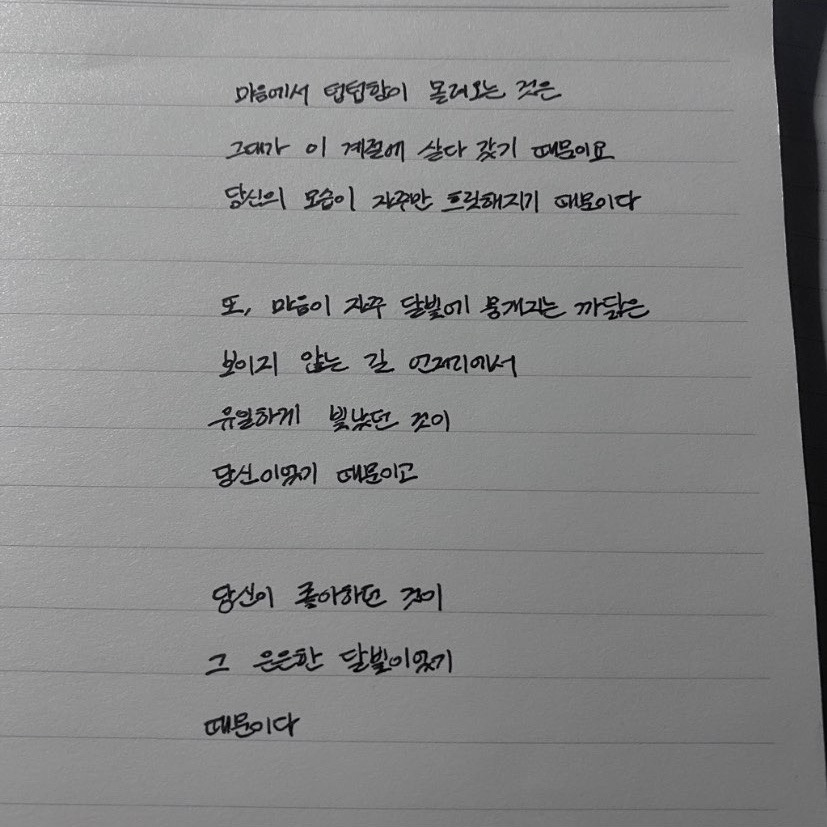 마음에서 텁텁함이 몰려오는 것은
그대가 이 계절에 살다 갔기 때문이요
당신의 모습이 자주만 흐릿해지기 때문이다
또, 마음이 자꾸 달빛에 뭉개지는 까닭은
보이지 않는 길 언저리에서
유일하게 빛났던 것이
당신이었기 때문이고
당신이 좋아하던 것이
그 은은한 달빛이었기
때문이다